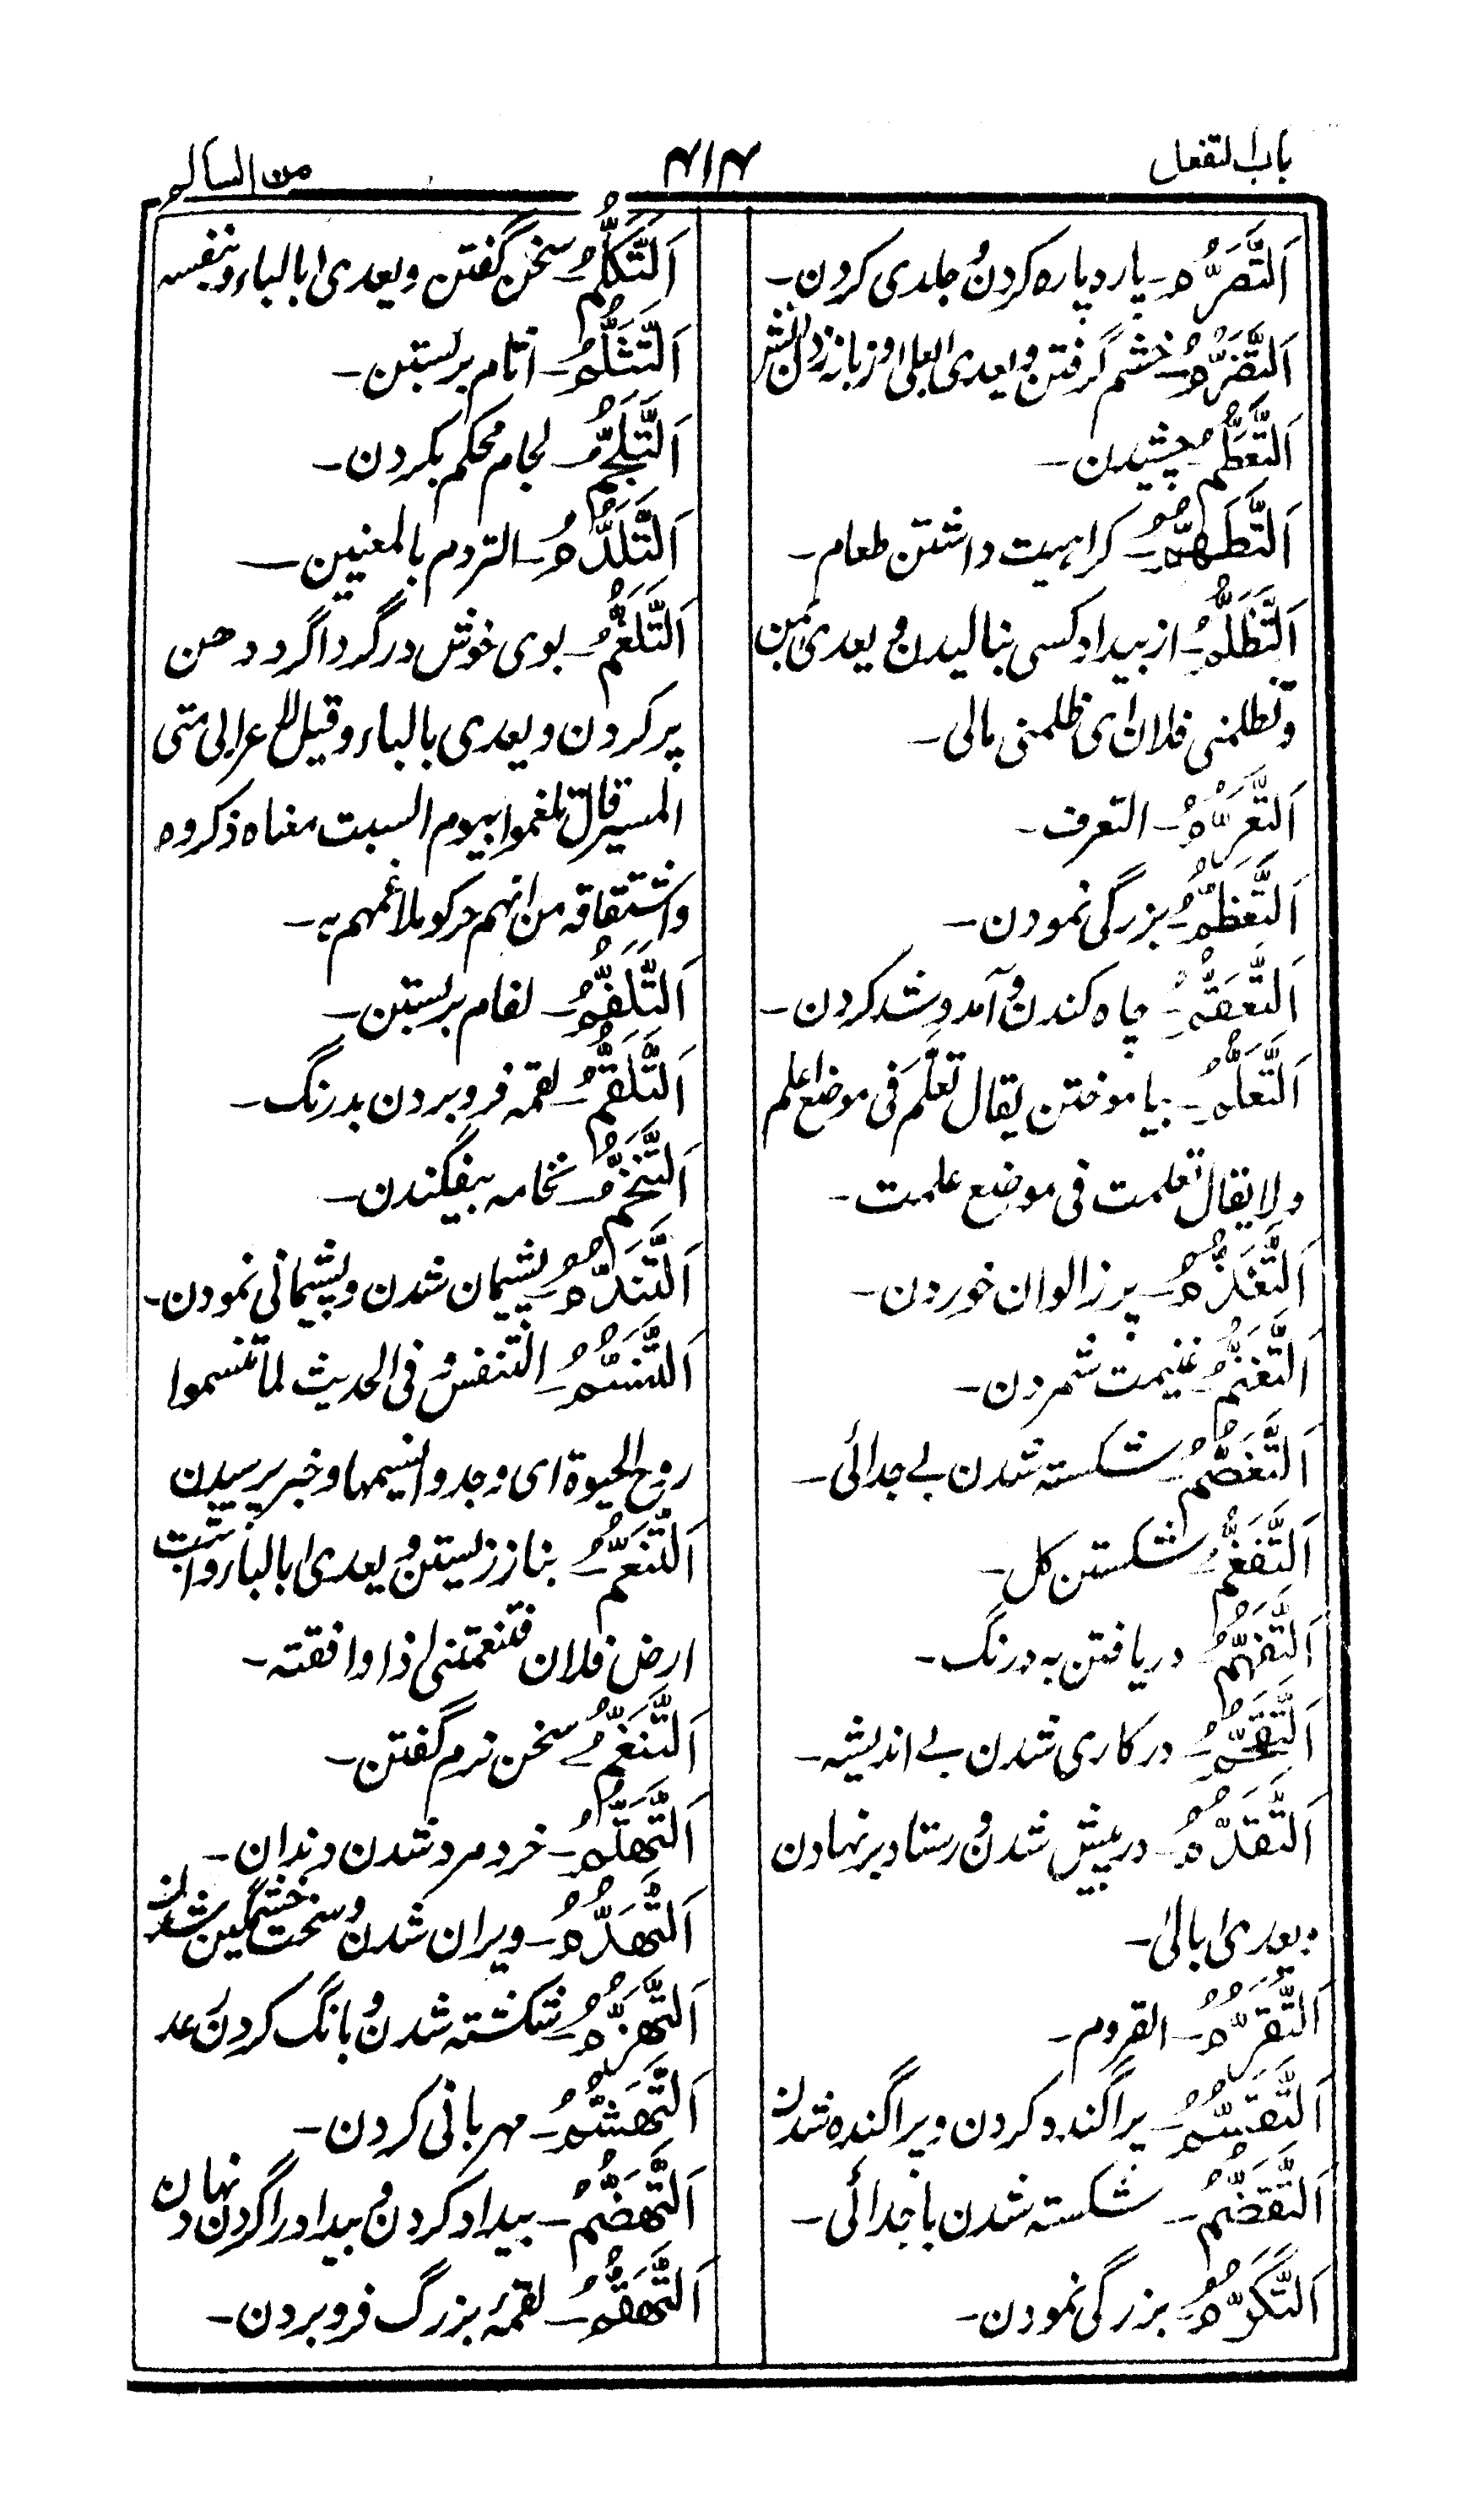 باب التفعل
۴۱۴
من السالم
اَلتَّصَرُّمُ۔ پاره پاره کردن و جلدی کردن۔
اَلتَّضَرُّمُ۔ خشم گرفتن و یعدی بعلی و زبانه زدن آتش
اَلتَّطَعُّمُ۔ چشیدن۔
اَلتَّطَهُّمُ۔ کراهیت داشتن طعام۔
اَلتَّظَلُّمُ۔ از بیداد کسی بنالیدن و یعدی بمن
وتظلمنی فلان ای ظلمنی مالی۔
اَلتَّعَرُّمُ۔ التعرف۔
اَلتَّعَظُّمُ۔ بزرگی نمودن۔
اَلتَّعَقُّمُ۔ چاه کندن و آمد و شد کردن۔
اَلتَّعَلُّمُ۔ بیاموختن یقال تَعَلَّمْ فی موضع اعلم
ولا یقال تعلمت فی موضع علمت۔
اَلتَّغَذُّمُ۔ پرزالوان خوردن۔
اَلتَّغَنُّمُ۔ غنیمت شمردن۔
اَلتَّفَصُّمُ۔ شکسته شدن بے جدائی۔
اَلتَّفَغُّمُ۔ شکستن کل۔
اَلتَّفَهُّمُ۔ دریافتن به درنگ۔
اَلتَّقَحُّمُ۔ در کاری شدن بے اندیشه۔
اَلتَّقَدُّمُ۔ در پیش شدن و رستاد برنهادن
ویعدی بالی۔
اَلتَّقَرُّمُ۔ القروم۔
اَلتَّقَسُّمُ۔ پراگنده کردن و پراگنده شدن
اَلتَّقَصُّمُ۔ شکسته شدن با جدائی۔
اَلتَّكَرُّمُ۔ بزرگی نمودن۔
اَلتَّكَلُّمُ۔ سخن گفتن و یعدی بالباء و بنفسه
اَلتَّلَثُّمُ۔ لثام بربستن۔
اَلتَّلَجُّمُ۔ لجام محکم بکردن۔
اَلتَّلَدُّمُ۔ التردم بالمعنیین۔
اَلتَّلَغُّمُ۔ بوی خوش در گرداگرد دهن
پر کردن و یعدی بالباء وقیل لاعرابی متی
المسیر قال تلغموا بیوم السبت معناه ذکروه
واشتقاقه من انهم حرکوا ملاغمهم به۔
اَلتَّلَفُّمُ۔ لفام بربستن۔
اَلتَّلَقُّمُ۔ لقمه فرو بردن بدرنگ۔
اَلتَّنَخُّمُ۔ نخامه بیفگندن۔
اَلتَّنَدُّمُ۔ پشیمان شدن و پشیمانی نمودن۔
اَلتَّنَسُّمُ۔ التنفس و فی الحدیث لما تنسموا
روح الحیوة ای وجدوا نسیمها و خبر پرسیدن
اَلتَّنَعُّمُ۔ بناز زیستن و یعدی بالباء واتیت
ارض فلان فتنعمتنی اذا وافقته۔
اَلتَّنَغُّمُ۔ سخن نرم گفتن۔
اَلتَّهَتُّمُ۔ خرد مرد شدن دندان۔
اَلتَّهَدُّمُ۔ ویران شدن و سخت خشمگین شدن
اَلتَّهَزُّمُ۔ شکسته شدن و بانگ کردن رعد
اَلتَّهَشُّمُ۔ مهربانی کردن۔
اَلتَّهَضُّمُ۔ بیداد کردن و بیداد را گردن نهادن
اَلتَّهَقُّمُ۔ لقمۀ بزرگ فرو بردن۔